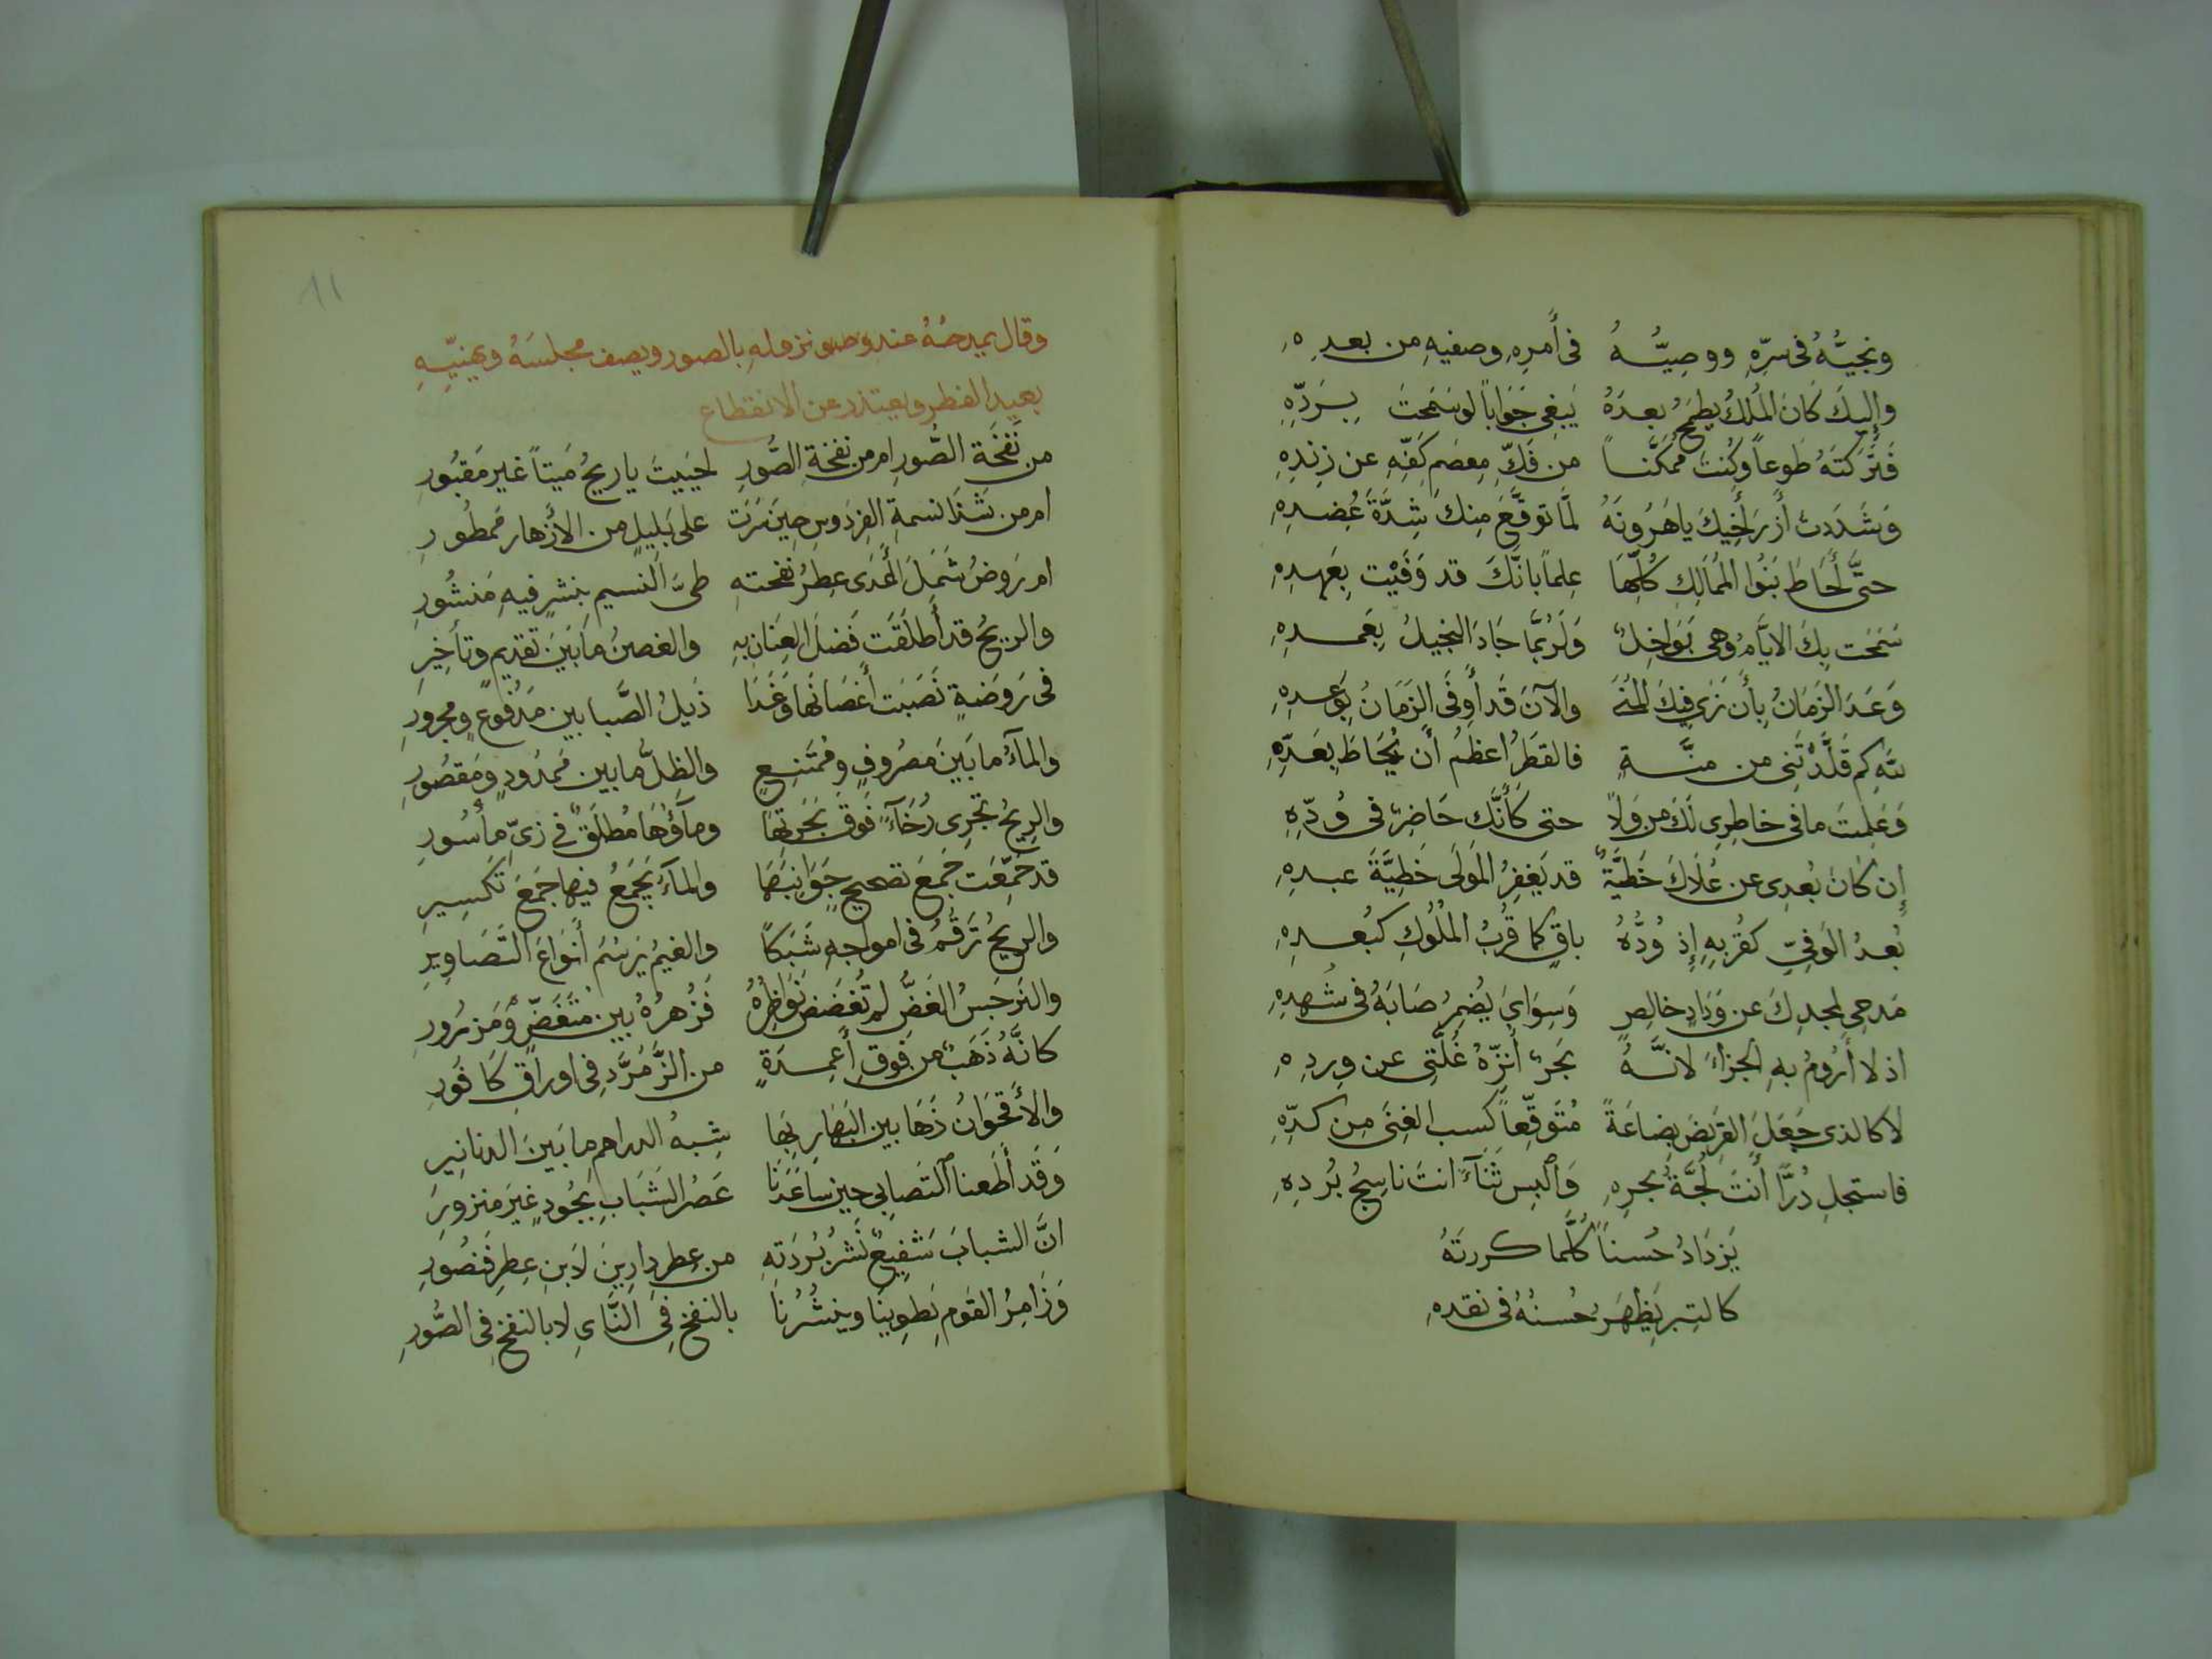 ونجيُّهُ فى سرِّهِ ووصيُّهُ فى أَمرِهِ وصفيهِ من بعدِهِ
وإليكَ كَانَ المُلكُ يطمحُ بعدَهُ يَبغى جَوَاباً لوسَمَحتَ بِرَدِّهِ
فَتَركتَهُ طَوعاً وكُنتَ مُمَكَّناً من فَكِّ مِعصَمِ كَفِّهِ عن زِندِهِ
وَشَدَدتَ أَزرَ أَخِيكَ ياهَرُونَهُ لمَّا توقَّعَ مِنكَ شِدَّةَ عُضدِهِ
حتَّى أَحَاطَ بَنُوا المَمَالِكِ كُلِّهَا عِلماً بانَّكَ قد وَفَيْت بِعَهدِهِ
سَمَحَت بِكَ الايَّامُ وهى بَوَاخِلٌ وَلَرُبَّمَا جَادَ البَخيلُ بِعَمدِهِ
وَعَدَ الزَمَانُ بِأَن نَرَى فِيكَ المُنَى والآنَ قَد أَوفَى الزَمَانُ بِوَعدِهِ
للهِ كم قَلَّدْتَنى من منَّةٍ فالقَطرُ اعظمُ أَن يُحَاطَ بِعَدِّهِ
وَعَلِمتَ ما فى خاطِرِى لَكَ من وَلاً حتى كَأَنَّكَ حَاضِرٌ فى وُدِّهِ
إِن كَانَ بُعدِى عن عُلَاكَ خَطيَّةٌ قد يَغفِرُ المَولَى خَطِيَّةَ عبدِهِ
بُعدُ الوَفِىِّ كقُربِهِ إِذ وُدُّهُ باقٍ كما قُربُ المُلُوكِ كبُعدِهِ
مَدحِى لِمجدِكَ عن وَدَادٍ خالِصٍ وَسِوَايَ يُضمِرُ صَابَهُ فى شُهدِهِ
اذ لا أَرُومُ بهِ الجزاءَ لانَّهُ بَحرٌ أُنَزِّهُ غُلَّتِى عن وِردِهِ
لا كالذى جَعَلَ القَرِيضَ بِضاعَةً مُتَوَقِّعاً كسبَ الغِنَى مِن كدِّهِ
فاستجلِ دُرّاً أَنتَ لُجَّةُ بحرِهِ وَالبِس ثَنَآءً انتَ ناسِجُ بُردِهِ
يَزدَادُ حُسناً كُلَّما كررتَهُ
كالتِبرِ يَظهَرُ حُسنُهُ فى نقدهِ
وقال يمدحُهُ عند نزوله بالصور ويصف مجلسَهُ ويهنيّهِ
بعيد الفطر ويعتذر عن الانقطاع
من نَفخَةِ الصُّورِ ام من نفخة الصُّورِ احيَيتَ ياريحُ مَيتاً غير مَقبُورِ
ام من شَذَا نسمةِ الفِردَوسِ حِينَ سَرَت على بَلِيلٍ من الأَزهار مَمطُورِ
ام رَوضُ شَمَلَ أَعدَى عِطرُ نفحتهِ طىَّ النسيمِ بِنشرٍ فيهِ مَنشُورِ
والريحُ قد أَطلَقَت فَضلَ العِنَانِ بهِ والغصنُ ما بَينَ تقديمٍ وتأخِيرِ
فى رَوضَةٍ نَصَبَت أَغصَانُها وَغَدَا ذَيلُ الصَّبا بين مَرفُوعٍ ومجرورِ
والمآءُ ما بَينَ مَصرُوفٍ ومُمتَنِعٍ والظِلُّ ما بين مَمدُودٍ ومَقصُورِ
والرِيحُ تجرى رُخَآءً فَوقَ بَحرَتِهَا ومآؤُهَا مُطلَقٌ فى زىِّ مأسُورِ
قد جُمِّعَت جَمعَ تصحيحٍ جَوَانِبُهَا والمآءُ يُجمَعُ فيها جَمعَ تكسِيرِ
والريحُ تَرقُمُ فى امواجِهِ شَبَكاً والغيمُ يَرسُمُ أَنوَاعَ التَصَاوِيرِ
والنَرجَسُ الغَضُّ لم تُغضَض نَوَاظِرُهُ فَزَهرُهُ بين مُنغَضٍّ وَمَزرُورِ
كانَّهُ ذَهَبٌ من فَوقِ أَعمِدَةٍ من الزَّمُرَّدِ فى اوراقِ كَافُورِ
والأَقحَوَانُ زَهَا بين البَهَارِ بِهَا شِبهُ الدراهمِ ما بَينَ الدنانِيرِ
وَقَد أَطَعنا التَصابِى حين سَاعَدَنَا عَصرُ الشَبَابِ بِجُودٍ غيرَ منزورِ
انَّ الشبابَ شَفِيعٌ نَشرُ بُردَتِهِ من عِطرِ دارِينَ لَا مِن عِطرِ فَنصُورِ
وَزَامِرُ القَومِ يَطوِينَا وينشُرُنا بالنفخِ فى النَّاىِ لا بالنفخِ فى الصُّورِ